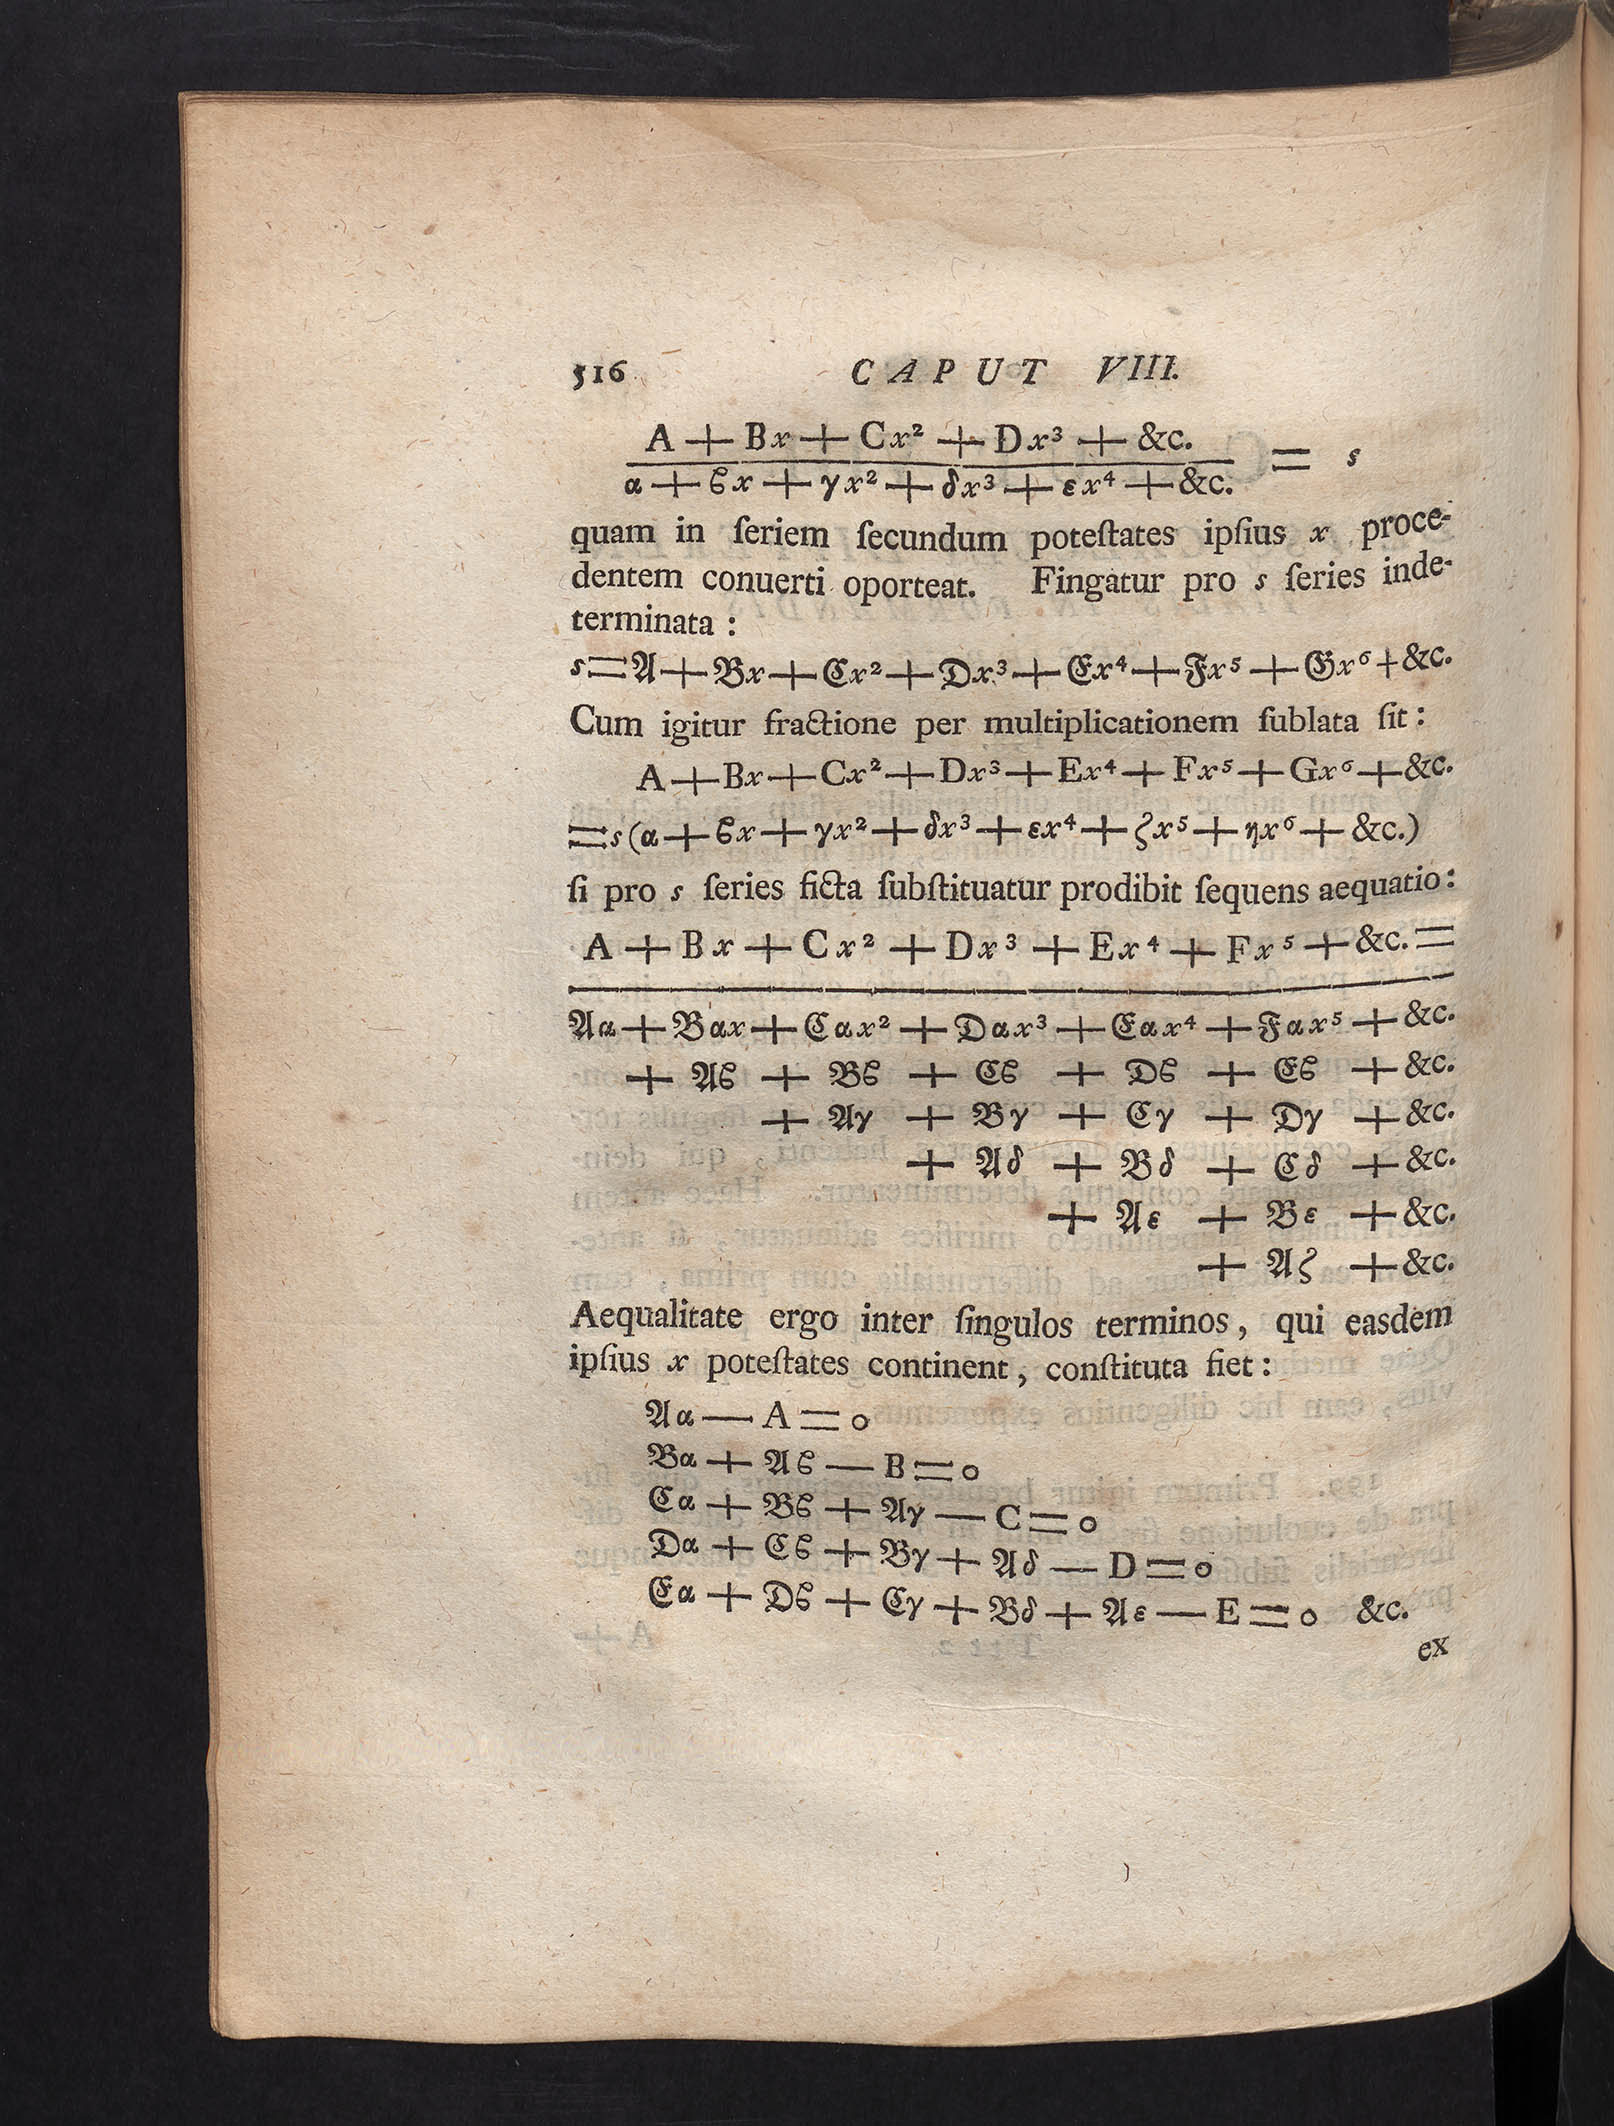 516 CAPUT VIII.
A + Bx + Cx² + Dx³ + &c.
α + ϐx + γx² + δx³ + εx⁴ + &c. = s
quam in ſeriem ſecundum poteſtates ipſius x proce-
dentem conuerti oporteat. Fingatur pro s ſeries inde-
terminata :
s = 𝔄 + 𝔅x + ℭx² + 𝔇x³ + 𝔈x⁴ + 𝔉x⁵ + 𝔊x⁶ + &c.
Cum igitur fractione per multiplicationem ſublata ſit :
A + Bx + Cx² + Dx³ + Ex⁴ + Fx⁵ + Gx⁶ + &c.
= s (α + ϐx + γx² + δx³ + εx⁴ + ζx⁵ + ηx⁶ + &c.)
ſi pro s ſeries ficta ſubſtituatur prodibit ſequens aequatio :
A + Bx + Cx² + Dx³ + Ex⁴ + Fx⁵ + &c. =
𝔄α + 𝔅αx + ℭαx² + 𝔇αx³ + 𝔈αx⁴ + 𝔉αx⁵ + &c.
+ 𝔄ϐ + 𝔅ϐ + ℭϐ + 𝔇ϐ + 𝔈ϐ + &c.
+ 𝔄γ + 𝔅γ + ℭγ + 𝔇γ + &c.
+ 𝔄δ + 𝔅δ + ℭδ + &c.
+ 𝔄ε + 𝔅ε + &c.
+ 𝔄ζ + &c.
Aequalitate ergo inter ſingulos terminos, qui easdem
ipſius x poteſtates continent, conſtituta fiet :
𝔄α — A = 0
𝔅α + 𝔄ϐ — B = 0
ℭα + 𝔅ϐ + 𝔄γ — C = 0
𝔇α + ℭϐ + 𝔅γ + 𝔄δ — D = 0
𝔈α + 𝔇ϐ + ℭγ + 𝔅δ + 𝔄ε — E = 0 &c.
ex